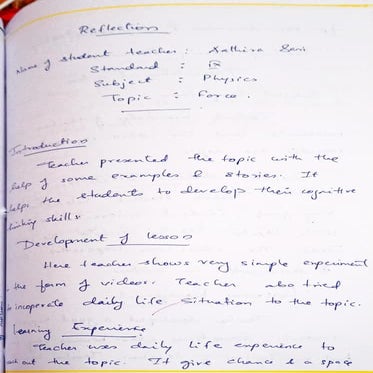 Reflection
Name of student teacher : Aathira Sani
Standard : IX
Subject : Physics
Topic : Force
Introduction
Teacher presented the topic with the
help of some examples & stories. It
helps the students to develop their cognitive
thinking skills.
Development of lesson
Here teacher shows very simple experiment
the form of videos. Teacher also tried
incoperate daily life situation to the topic.
Learning Experience
Teacher uses daily life experience to
out the topic. It give chance & a space